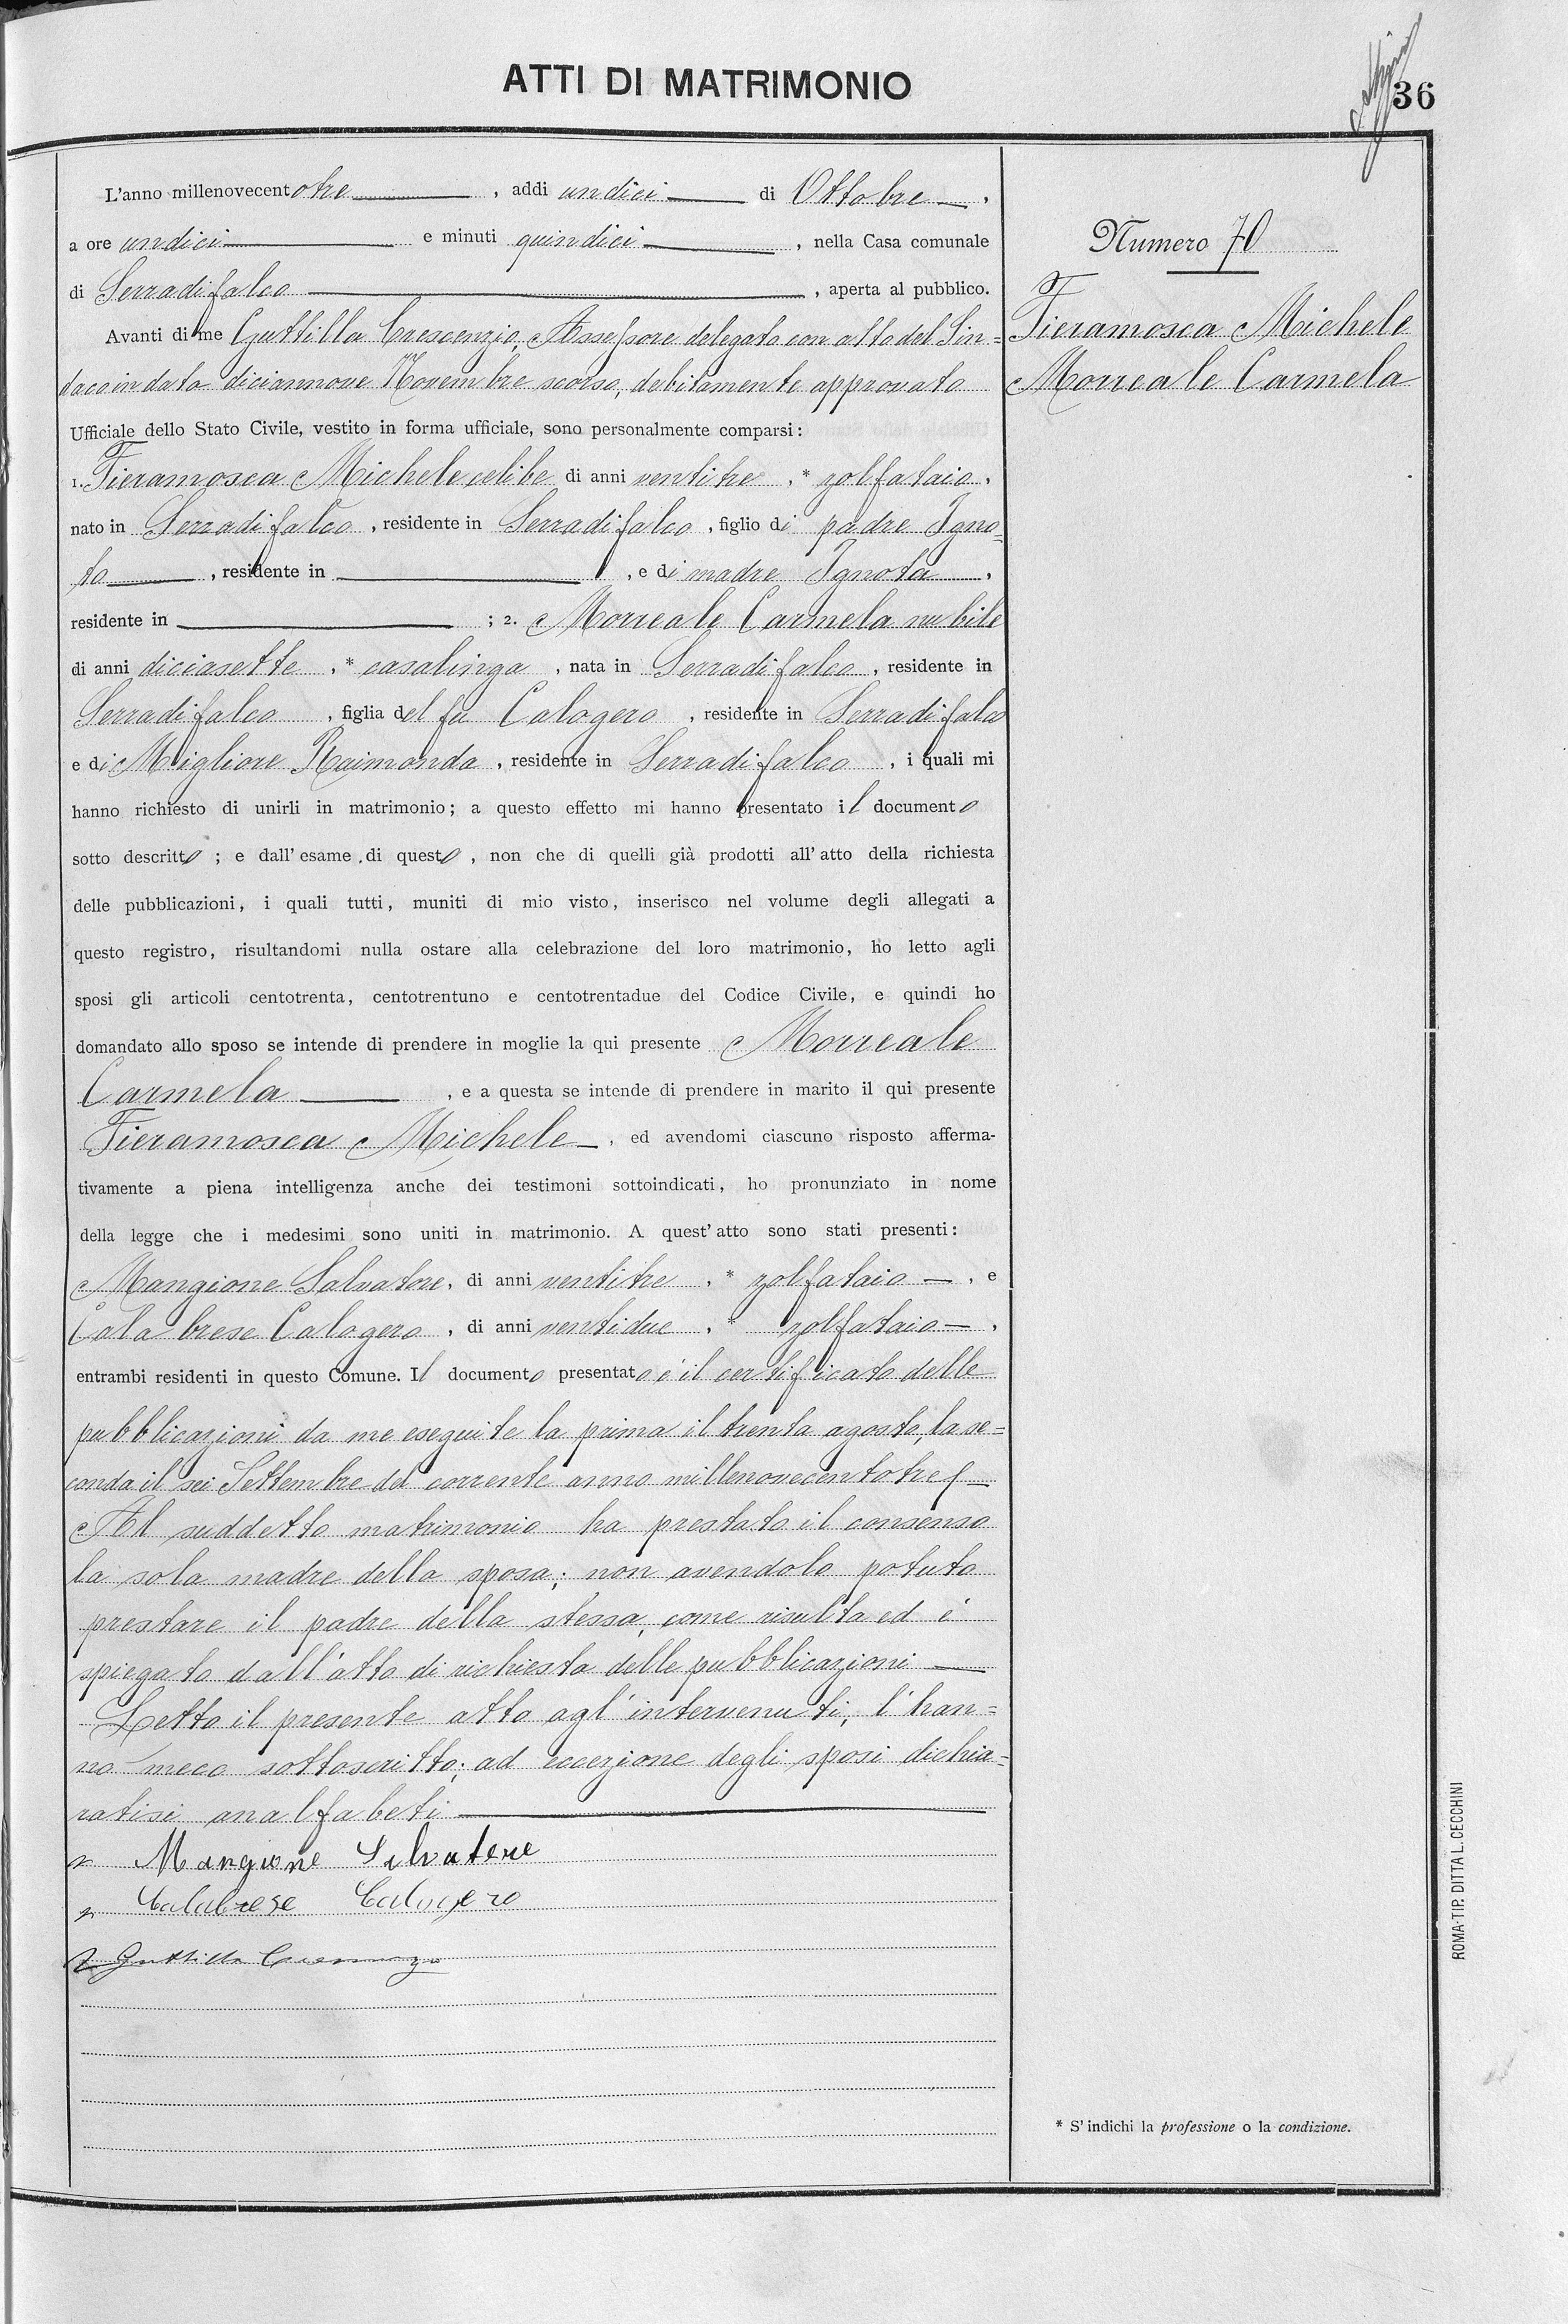 ATTI DI MATRIMONIO
36
L'anno millenovecentotre, addi undici di Ottobre,
a ore undici e minuti quindici, nella Casa comunale
di Serradifalco, aperta al pubblico.
Avanti di me Guttilla Crescenzio, Assessore delegato con atto del Sin=
daco in data diciannove Novembre scorso, debitamente approvato
Ufficiale dello Stato Civile, vestito in forma ufficiale, sono personalmente comparsi:
1. Fieramosca Michele celibe di anni ventitre, * zolfataio,
nato in Serradifalco, residente in Serradifalco, figlio di padre Igno=
to, residente in , e di madre Ignota,
residente in ; 2. Morreale Carmela nubile
di anni diciasette, * casalinga, nata in Serradifalco, residente in
Serradifalco, figlia del fu Calogero, residente in Serradifalco
e di Migliore Raimonda, residente in Serradifalco, i quali mi
hanno richiesto di unirli in matrimonio; a questo effetto mi hanno presentato il documento
sotto descritto; e dall'esame di questo, non che di quelli già prodotti all'atto della richiesta
delle pubblicazioni, i quali tutti, muniti di mio visto, inserisco nel volume degli allegati a
questo registro, risultandomi nulla ostare alla celebrazione del loro matrimonio, ho letto agli
sposi gli articoli centotrenta, centotrentuno e centotrentadue del Codice Civile, e quindi ho
domandato allo sposo se intende di prendere in moglie la qui presente Morreale
Carmela, e a questa se intende di prendere in marito il qui presente
Fieramosca Michele, ed avendomi ciascuno risposto afferma-
tivamente a piena intelligenza anche dei testimoni sottoindicati, ho pronunziato in nome
della legge che i medesimi sono uniti in matrimonio. A quest'atto sono stati presenti:
Mangione Salvatore, di anni ventitre, * zolfataio, e
Calabrese Calogero, di anni ventidue, * zolfataio,
entrambi residenti in questo Comune. Il documento presentato è il certificato delle
pubblicazioni da me eseguite la prima il trenta agosto, la se=
conda il sei Settembre del corrente anno millenovecentotre
Al suddetto matrimonio ha prestato il consenso
la sola madre della sposa; non avendolo potuto
prestare il padre della stessa, come risulta ed è
spiegato dall'atto di richiesta delle pubblicazioni
Letto il presente atto agl'intervenuti, l'han=
no meco sottoscritto; ad eccezione degli sposi dichia=
ratisi analfabeti
Mangione Salvatore
Calabrese Calogero
Guttilla Crescenzio
Numero 70
Fieramosca Michele
Morreale Carmela
* S'indichi la professione o la condizione.
ROMA-TIP. DITTA L. CECCHINI